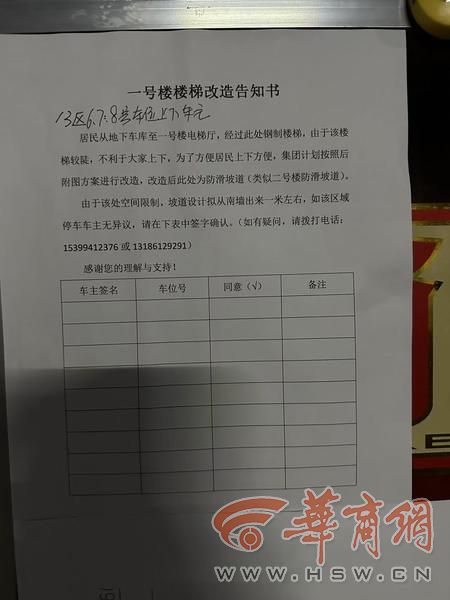 一号楼楼梯改造告知书
13区6.7.8号车位上下单元
居民从地下车库至一号楼电梯厅，经过此处钢制楼梯，由于该楼
梯较陡，不利于大家上下，为了方便居民上下方便，集团计划按照后
附图方案进行改造，改造后此处为防滑坡道（类似二号楼防滑坡道）。
由于该处空间限制，坡道设计拟从南墙出来一米左右，如该区域
停车车主无异议，请在下表中签字确认。（如有疑问，请拨打电话：
15399412376 或 13186129291）
感谢您的理解与支持！
车主签名 车位号 同意（√） 备注
華商網
WWW.HSW.CN